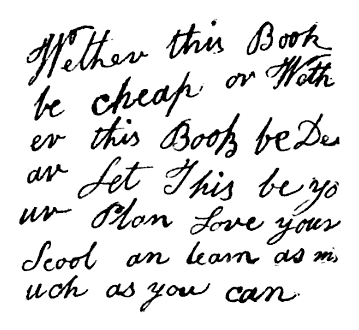 Wether this Book
be cheap or Weth
er this Book be De
ar Let This be yo
ur Plan Love your
Scool an learn as m
uch as you can